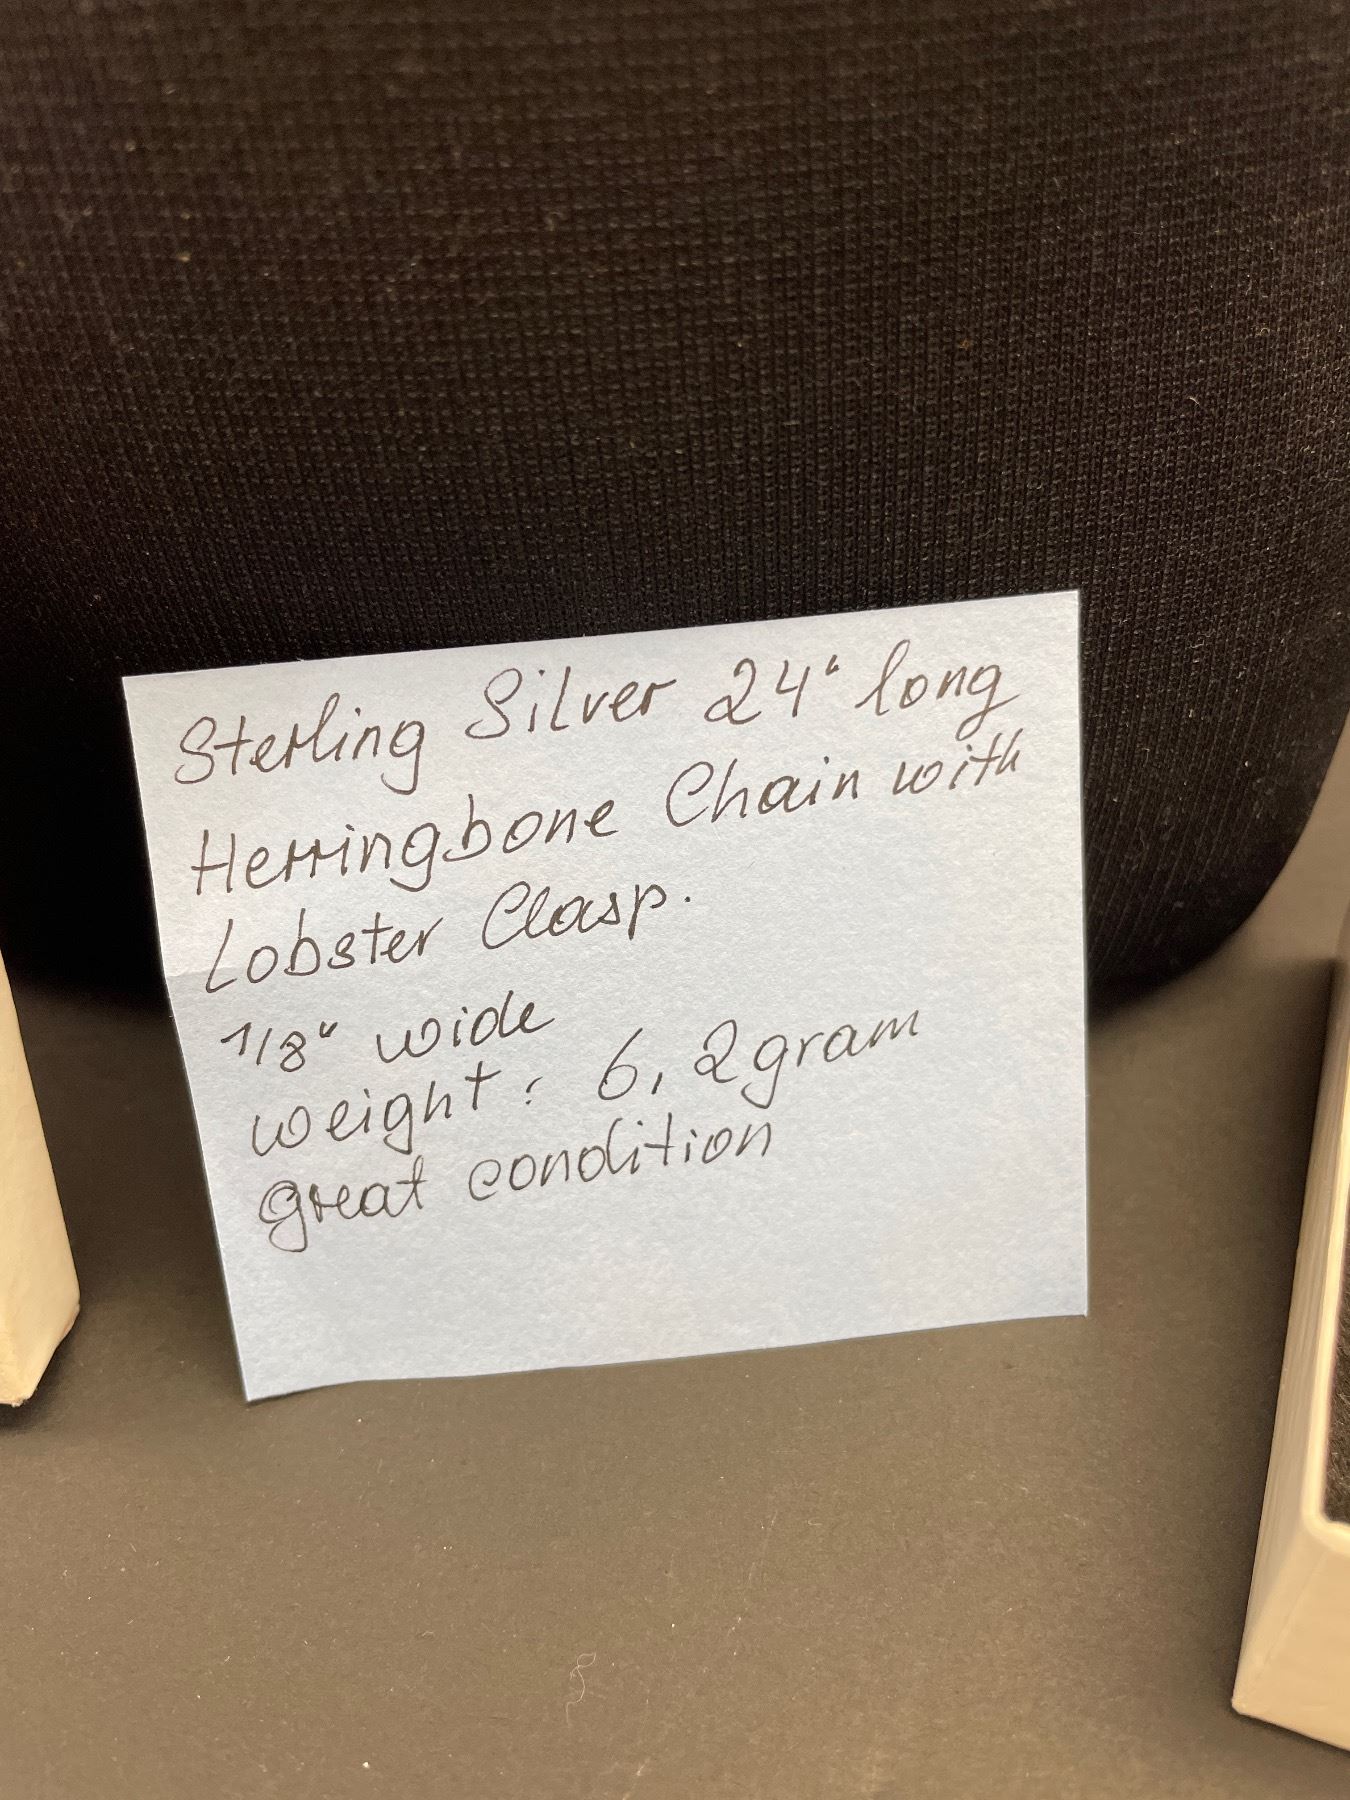 Sterling Silver 24" long
Herringbone Chain with
Lobster Clasp.
1/8" wide
weight: 6,2gram
great condition